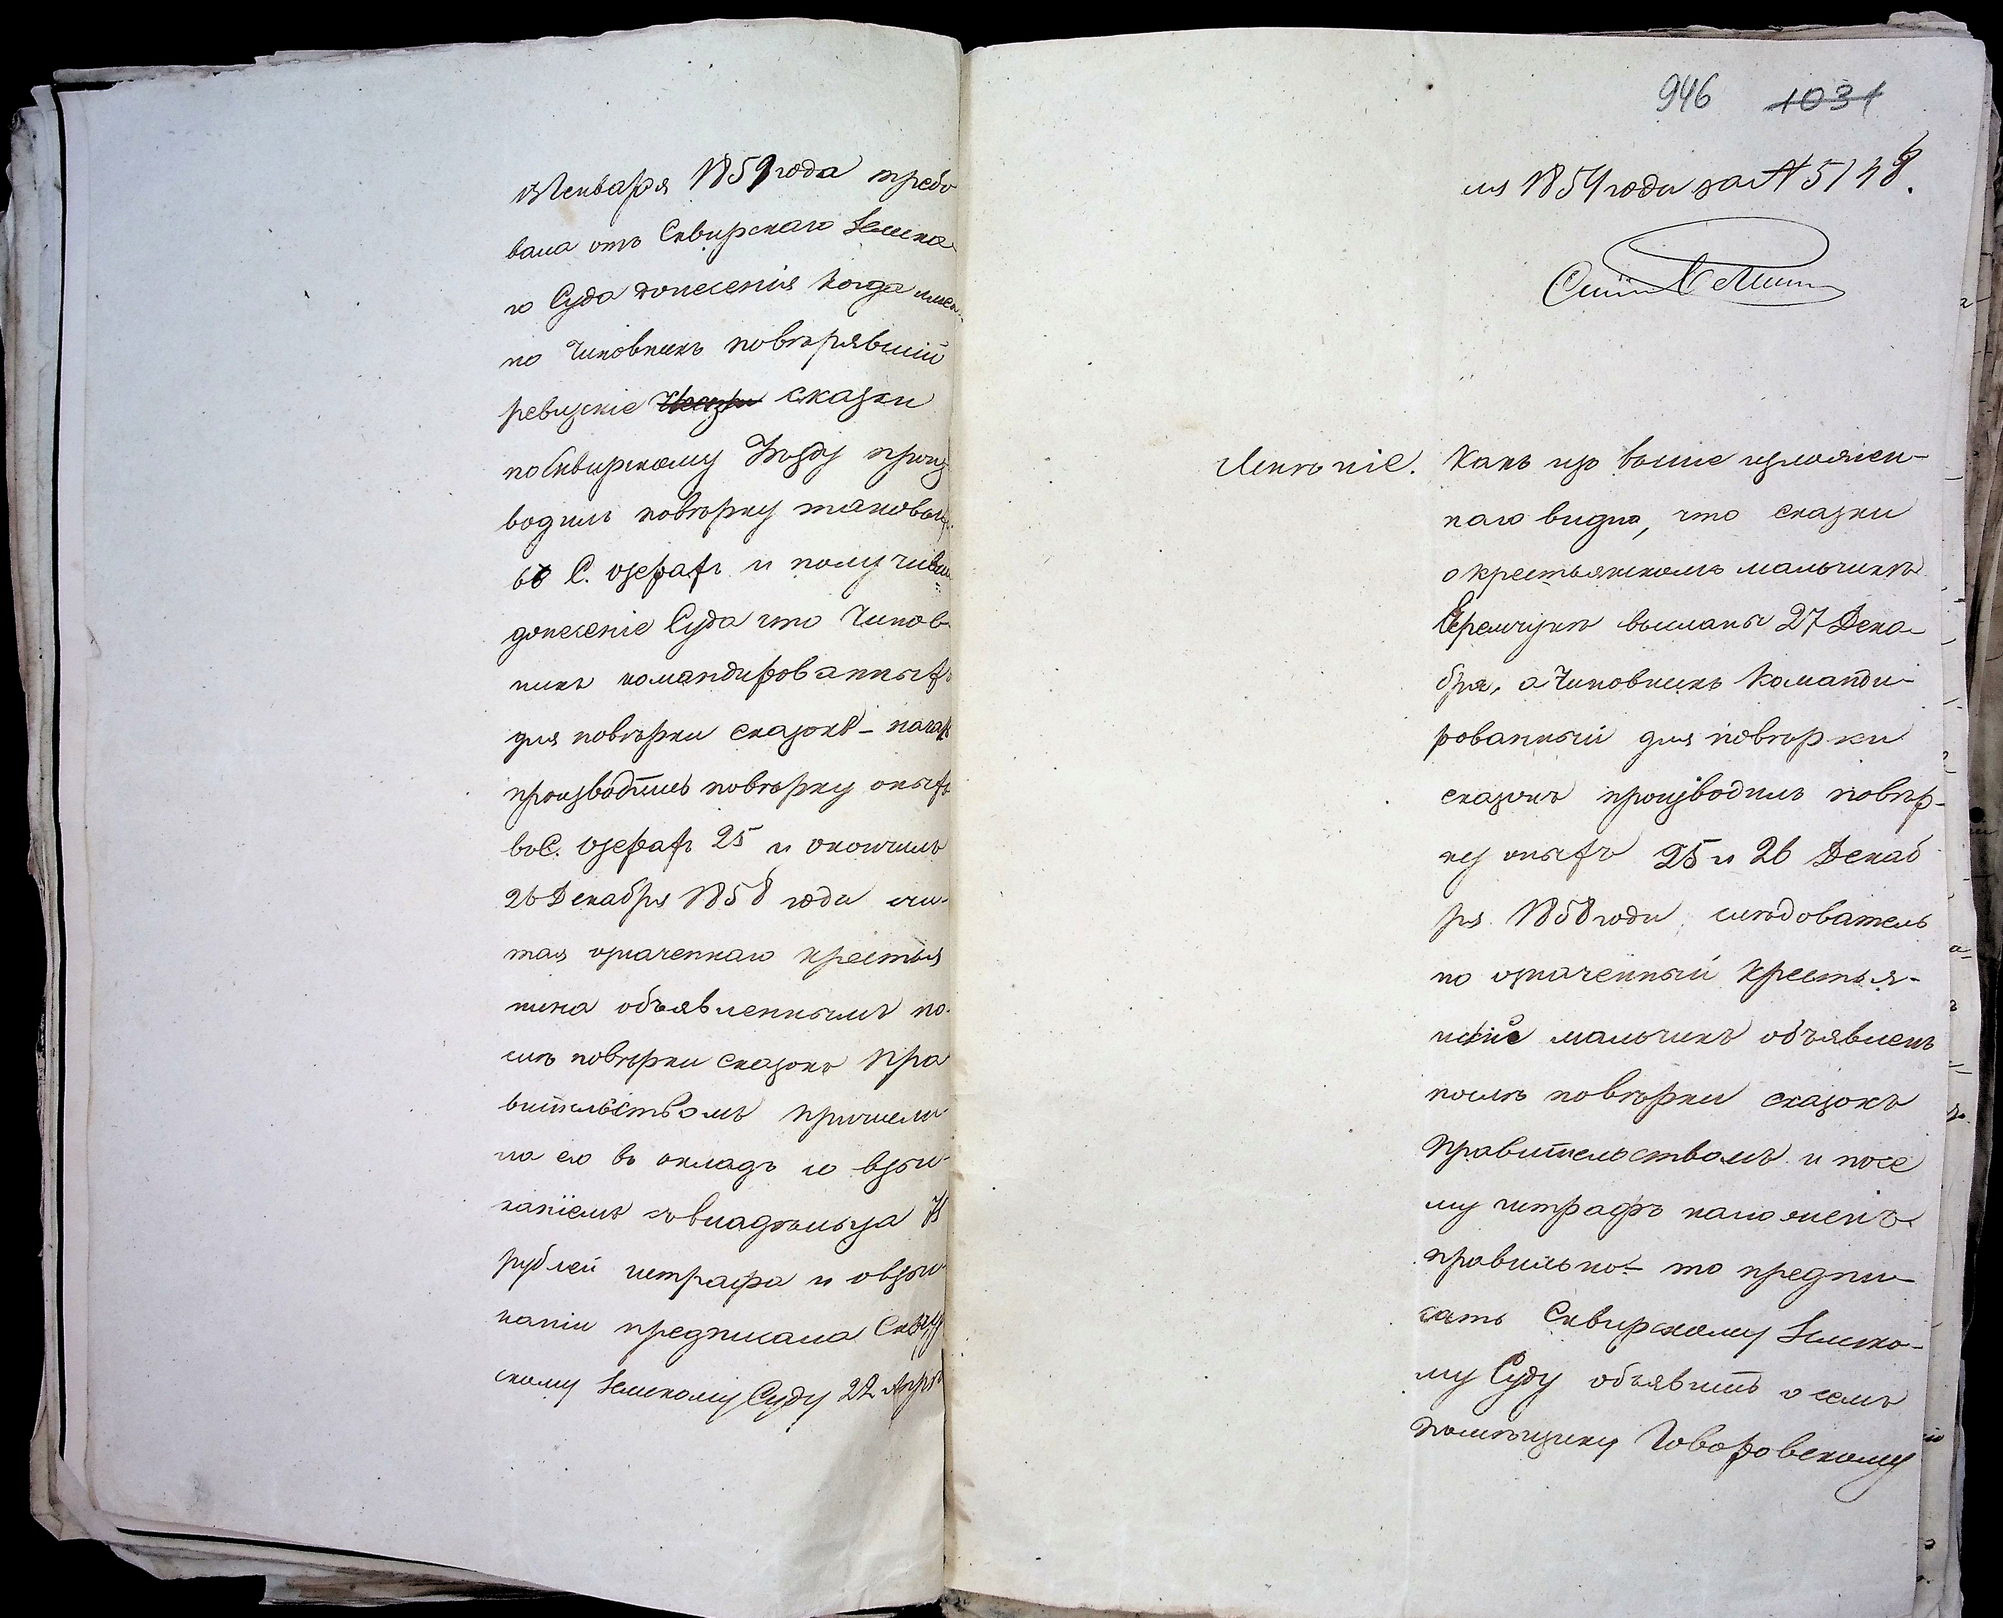 Января 1859 года требо
вала отъ Сквирскаго Земска
го Суда донесенія когда имен
но Чиновникъ повѣрявшій
ревизскіе сказки
по Сквирскому Уѣзду произ
водилъ повѣрку таковыхъ
въ С. Озерахъ и получивши
донесеніе Суда что Чинов
никъ командированныхъ
для повѣрки сказокъ - началъ
производить повѣрку оныхъ
въ С. Озерахъ 25 и окончилъ
26 Декабря 1858 года счи-
тая означеннаго крестья
нина объявленнымъ по-
слѣ повѣрки сказокъ Пра
вительствомъ причисли-
ла его въ окладъ со взы-
каніемъ съ владѣльца
рублей штрафа и о взы-
каніи предписала Сквир
скому Земскому Суду 22 Апрѣ
946 1031
ля 1859 года за №
Мнѣніе. Какъ изъ выше изложен-
наго видно, что сказки
о крестьянскомъ мальчикѣ
Еремчукѣ высланы 27 Дека-
бря, а Чиновникъ Команди-
рованный для повѣрки
сказокъ производилъ повѣр-
ку оныхъ 25 и 26 Декаб
ря 1858 года, слѣдователь
но означенный Крестья-
нскій мальчикъ объявленъ
послѣ повѣрки сказокъ
Правительствомъ и посе
му штрафъ наложенъ
правильно - то предпи-
сать Сквирскому Земско-
му Суду объявить о семъ
помѣщику Говоровскому